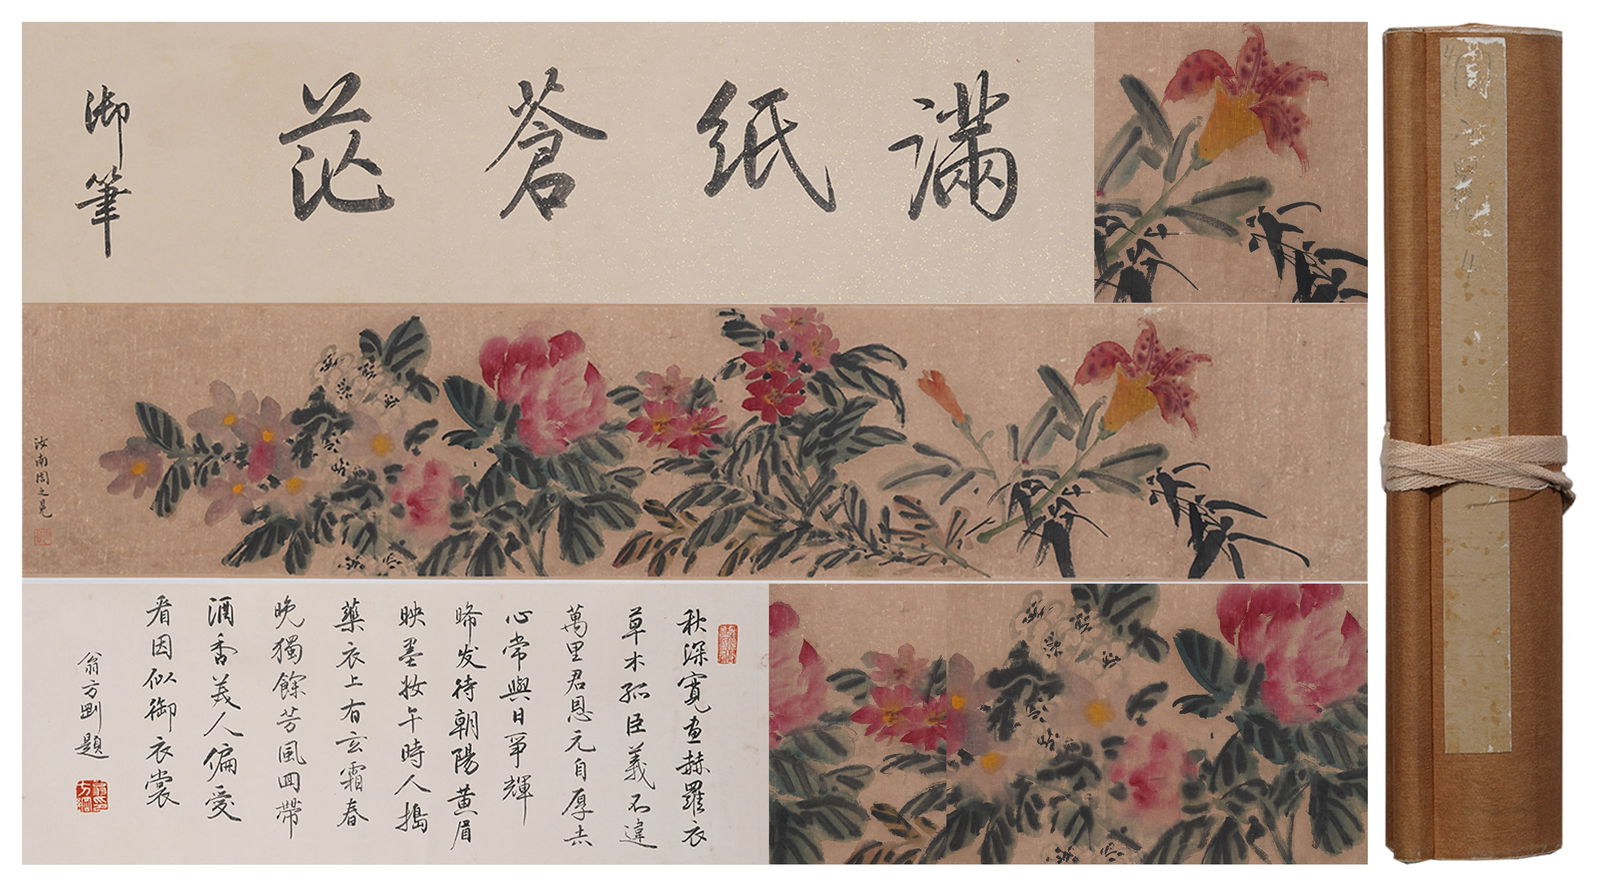 满紙蒼茫
御筆
汝南周之冕
秋深寛畫赫羅衣
草木孤臣義不違
萬里君恩元自厚去
心常與日爭輝
晞发待朝陽黄眉
映墨妝午時人搗
藥衣上有玄霜春
晚獨餘芳風回帶
酒香美人偏愛
看因似御衣裳
翁方剛題